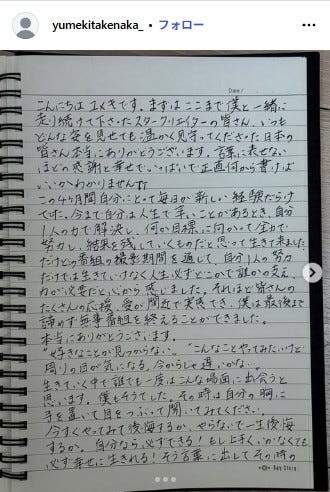 yumekitakenaka_ ・ フォロー
Date /
こんにちは ユメキです。まずはここまで僕と一緒に
走り続けて下さったスタークリエイターの皆さん、いつも
どんな姿を見せても温かく見守ってくださった日本の
皆さん本当にありがとうございます。言葉に表せない
ほどの感謝と幸せでいっぱいで正直何から書けば
いいかわかりません
この4ヶ月間自分にとって毎日が新しい経験だらけ
でした。今まで自分は人生で辛いことがあるとき、自分
1人の力で解決し、何か目標に向かって全力で
努力し、結果を残していくものだと思って生きて来ました。
だけどこの番組の撮影期間を通して、自分1人の努力
だけでは生きていけなく人生必ずどこかで誰かの支え
が必要だと心から感じました。それほど皆さんの
たくさんの応援、愛が間近で実感でき、僕は最後まで
諦めず無事番組を終えることができました。
本当にありがとうございます。
"好きなことが見つからない。" "こんなことやってみたいけど
周りの目が気になる、今からじゃ遅いかな。"
生きていく中で誰でも一度はこんな場面に出会うと
思います。僕もそうでした。その時は自分の胸に
手を置いて目をつぶって聞いてみてください。
今すぐやってみて後悔するか、やらないで一生後悔
するか。自分なら必ずできる！もし上手くいかなくても
必ず幸せに生きれる！そう言葉に出してその時の